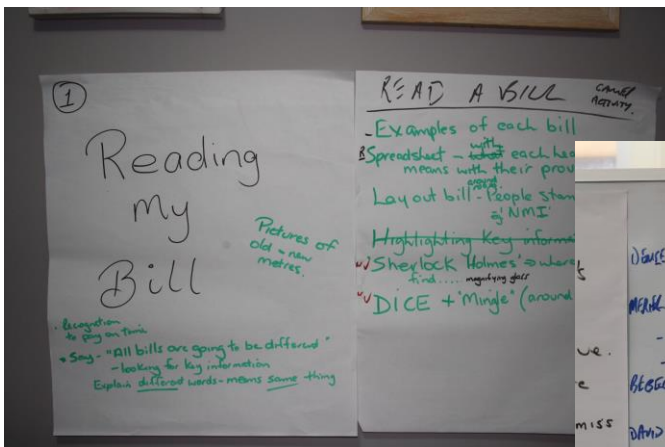 1
Reading
my
Bill
Pictures of
old - new
metres.
· Recognition
to pay on time
* Say - "All bills are going to be different"
- looking for key information
Explain different words - means same thing
READ A BILL
ACTIVITY.
- Examples of each bill
Spreadsheet - with each
means with their
around room
Layout bill - People
eg 'NMI'
Highlighting Key
Sherlock 'Holmes' → where
find.... magnifying glass
DICE + "Mingle" (around
ve.
e
miss
DENISE
DAVID